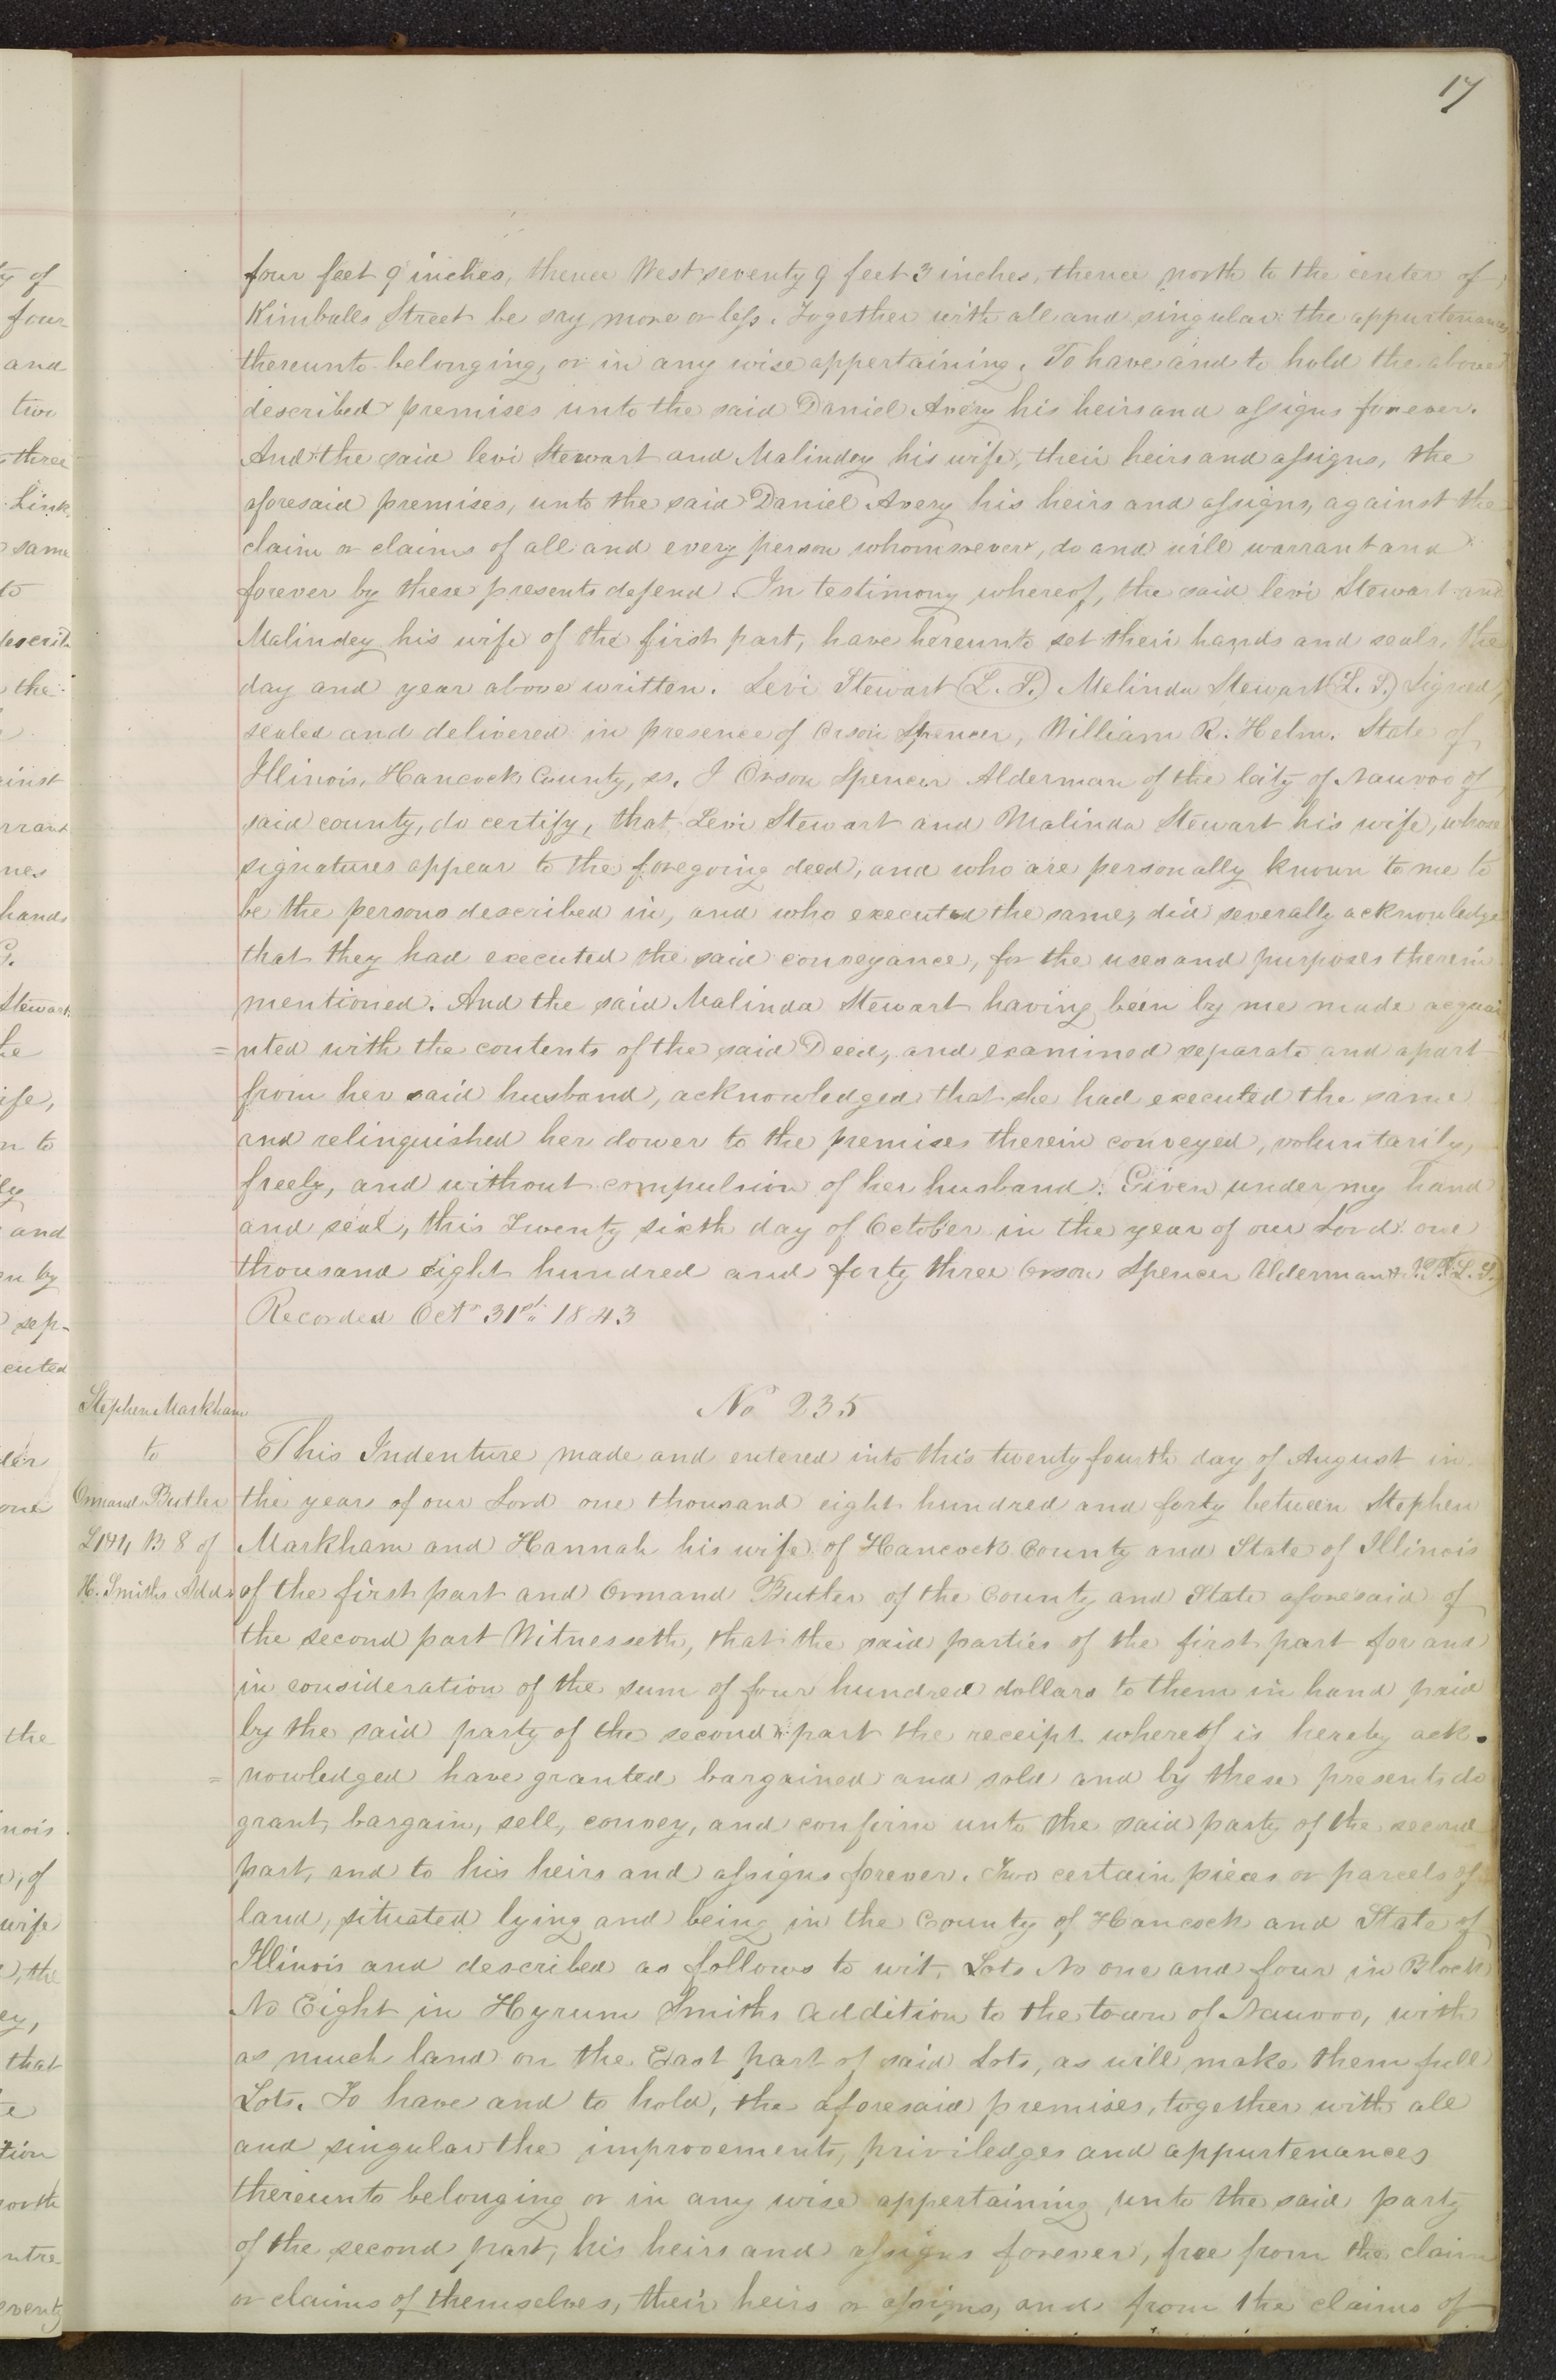 17
four feet 9 inches, thence West seventy 9 feet 3 inches, thence north to the center of
Kimballs Street be say more or less. Together with all and singular the appurtenances
thereunto belonging, or in any wise appertaining. To have and to hold the above
described premises unto the said Daniel Avery his heirs and assigns forever.
And the said levi Stewart and Malindey his wife, their heirs and assigns, the
aforesaid premises, unto the said Daniel Avery his heirs and assigns, against the
claim or claims of all and every person whomsoever, do and will warrant and
forever by these presents defend. In testimony whereof, the said levi Stewart and
Malindey his wife of the first part, have hereunto set their hands and seals, the
day and year above written. Levi Stewart (L. S.) Melinda Stewart (L. S.) Signed,
sealed and delivered in presence of Orson Spencer, William R. Helm. State of
Illinois, Hancock County, ss. I Orson Spencer Alderman of the City of Nauvoo of
said county, do certify, that Levi Stewart and Malinda Stewart his wife, whose
signatures appear to the foregoing deed, and who are personally known to me to
be the persons described in, and who executed the same, did severally acknowledge
that they had executed the said conveyance, for the uses and purposes therein
mentioned. And the said Malinda Stewart having been by me made acquai
= nted with the contents of the said Deed, and examined separate and apart
from her said husband, acknowledged that she had executed the same
and relinquished her dower to the premises therein conveyed, voluntarily,
freely, and without compulsion of her husband. Given under my hand
and seal, this Twenty sixth day of October in the year of our Lord one
thousand eight hundred and forty three Orson Spencer Alderman (L. S.)
Recorded Oct 31st 1843
Stephen Markham
to
Ormand Butler
L 1&4 B 8 of
H. Smiths Add
No 235
This Indenture made and entered into this twenty fourth day of August in
the year of our Lord one thousand eight hundred and forty between Stephen
Markham and Hannah his wife of Hancock County and State of Illinois
of the first part and Ormand Butler of the County and State aforesaid of
the second part Witnesseth, that the said parties of the first part for and
in consideration of the sum of four hundred dollars to them in hand paid
by the said party of the second part the receipt whereof is hereby ack
= nowledged have granted bargained and sold and by these presents do
grant, bargain, sell, convey, and confirm unto the said party of the second
part, and to his heirs and assigns forever. Two certain pieces or parcels of
land, situated lying and being in the County of Hancock and State of
Illinois and described as follows to wit. Lots No one and four in Block
No Eight in Hyrum Smiths addition to the town of Nauvoo, with
as much land on the East part of said Lots, as will make them full
Lots. To have and to hold, the aforesaid premises, together with all
and singular the improvements, priviledges and appurtenances
thereunto belonging or in any wise appertaining unto the said party
of the second part, his heirs and assigns forever, free from the claim
or claims of themselves, their heirs or assigns, and from the claims of